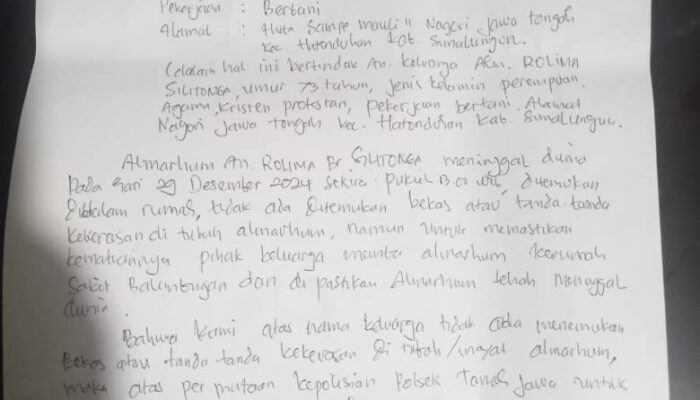 Pekerjaan : Bertani
Alamat : Huta Sampe mauli" Nagori Jawa tongah
Kec. Hatonduhan Kab. Simalungun.
(dalam hal ini bertindak An. keluarga Alm. ROLIMA
SILITONGA, umur 73 tahun, jenis kelamin perempuan.
Agama, kristen protestan, pekerjaan bertani. Alamat
Nagori Jawa tongah kec. Hatonduhan kab. Simalungun.
Almarhum An. ROLIMA Br SILITONGA meninggal dunia
Pada hari 29 Desember 2024 sekira pukul wib, ditemukan
didalam rumas, tidak ada ditemukan bekas atau tanda-tanda
kekerasan di tubuh almarhum, namun untuk memastikan
kematiannya pihak keluarga almarhum kerumah
Sakit Balimbingan dan di pastikan Almarhum telah meninggal
dunia.
Bahwa kami atas nama keluarga tidak ada menemukan
bekas atau tanda-tanda kekerasan di tubuh/mayat almarhum,
maka atas permintaan kepolisian Polsek tanah Jawa untuk